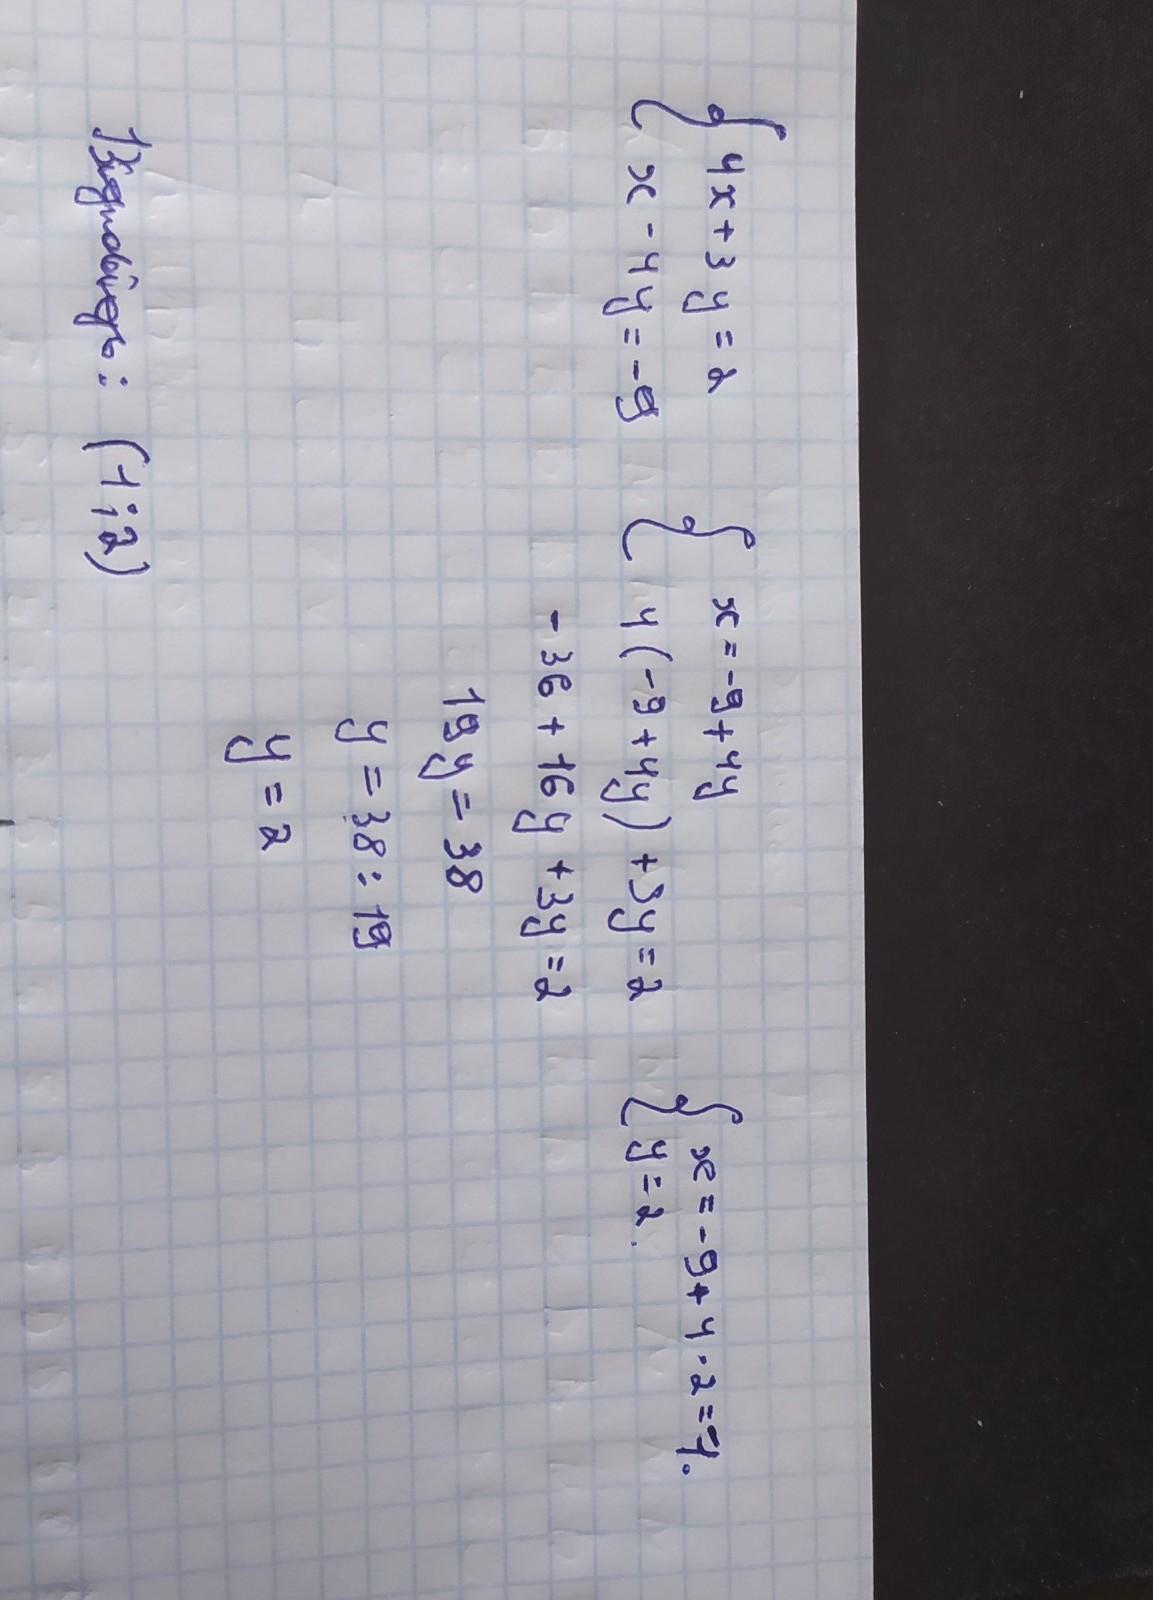 { 4x + 3y = 2
x - 4y = -9
{ x = -9 + 4y
4(-9 + 4y) + 3y = 2
-36 + 16y + 3y = 2
19y = 38
y = 38 : 19
y = 2
{ x = -9 + 4 · 2 = -1.
y = 2.
Відповідь: (-1; 2)